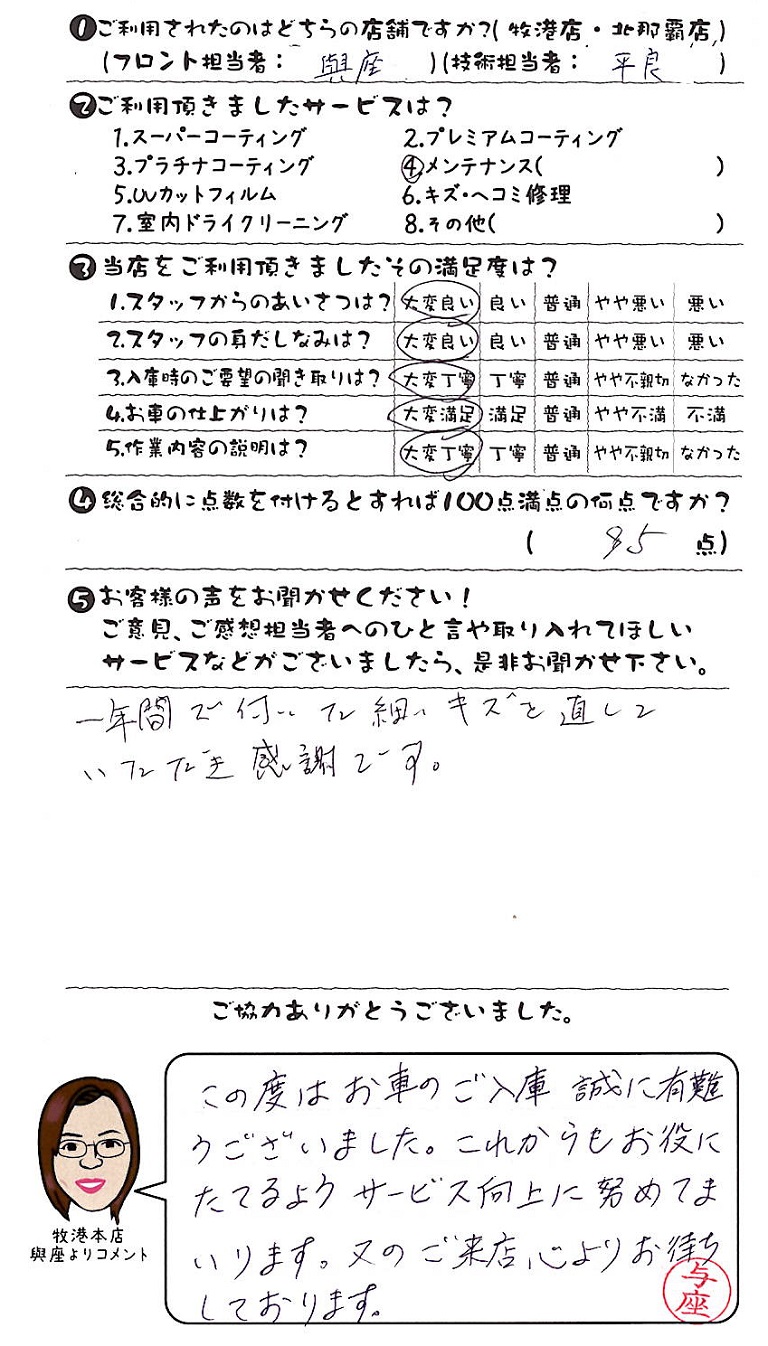 ❶ご利用されたのはどちらの店舗ですか?(牧港店・北那覇店)
(フロント担当者: 與座 )(技術担当者: 平良 )
❷ご利用頂きましたサービスは?
1.スーパーコーティング 2.プレミアムコーティング
3.プラチナコーティング ④メンテナンス( )
5.UVカットフィルム 6.キズ・ヘコミ修理
7.室内ドライクリーニング 8.その他( )
❸当店をご利用頂きましたその満足度は?
1.スタッフからのあいさつは? 大変良い 良い 普通 やや悪い 悪い
2.スタッフの身だしなみは? 大変良い 良い 普通 やや悪い 悪い
3.入庫時のご要望の聞き取りは? 大変丁寧 丁寧 普通 やや不親切 なかった
4.お車の仕上がりは? 大変満足 満足 普通 やや不満 不満
5.作業内容の説明は? 大変丁寧 丁寧 普通 やや不親切 なかった
❹総合的に点数を付けるとすれば100点満点の何点ですか?
( 点)
❺お客様の声をお聞かせください!
ご意見、ご感想担当者へのひと言や取り入れてほしい
サービスなどがございましたら、是非お聞かせ下さい。
一年間で付いた細いキズを直して
いただき感謝です。
ご協力ありがとうございました。
この度はお車のご入庫 誠に有難
うございました。これからもお役に
たてるよう サービス向上に努めてま
いります。又のご来店、心よりお待ち
しております。
牧港本店
與座よりコメント
与座